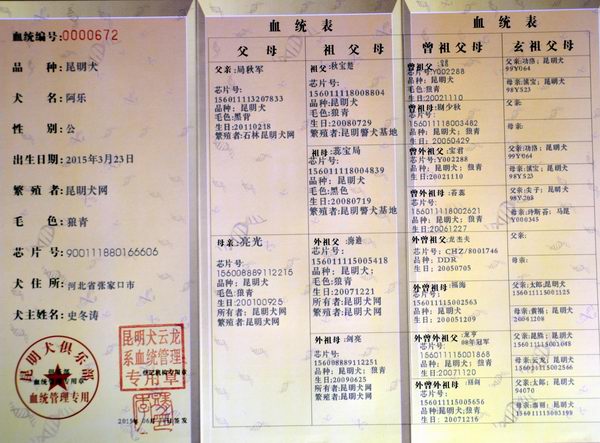 血统编号:0000672
品 种:昆明犬
犬 名:阿乐
性 别:公
出生日期:2015年3月23日
繁 殖 者:昆明犬网
毛 色:狼青
芯 片 号:900111880166606
犬 住 所:河北省张家口市
犬主姓名:史冬涛
昆明犬俱乐部
血统管理专用
血统管理专用章
昆明犬云龙
系血统管理
专用章
登记机构专用章
血统表
父母
祖父母
父亲:局秋军
芯片号:
156011113207833
品种:昆明犬
毛色:黑背
生日:20110218
繁殖者:石林昆明犬网
母亲:亮光
芯片号:
156008889112215
品种:昆明犬
毛色:狼青
生日:200100925
所有者:昆明犬网
繁殖者:昆明犬网
祖父:秋宝楚
芯片号:
156011118008804
品种:昆明犬
毛色:狼青
生日:20080729
繁殖者:昆明警犬基地
祖母:蕊宝局
芯片号:
156011118004839
品种:昆明犬
毛色:黑色
生日:20080719
繁殖者:昆明警犬基地
外祖父:海迪
芯片号:
156011115005418
品种:昆明犬
毛色:狼青
生日:20071221
所有者:昆明犬网
繁殖者:昆明犬网
外祖母:剑亮
芯片号:
156008889112251
品种:昆明犬
毛色:狼青
生日:20090625
所有者:昆明犬网
繁殖者:昆明犬网
血统表
曾祖父母
玄祖父母
曾祖父:
芯片号Y002288
品种:昆明犬:狼青
生日:20021110
曾祖母:剔少秋
芯片号:
156011118003482
品种:昆明犬:狼青
生日:20050429
曾外祖父:宝君
芯片号:Y002288
品种:昆明犬:狼青
生日:20021110
曾外祖母:蕊
芯片号:
156011118002621
品种:昆明犬:狼青
生日:20061227
外曾祖父:龙杰夫
芯片号:CHZ/8001746
品种:DDR
生日:20050705
外曾祖母:福海
芯片号:
156011115002563
品种:昆明犬
生日:200051209
外曾外祖父:
08年冠军
芯片号:
156011115001868
品种:昆明犬:狼青
生日:20071120
外曾外祖母:
芯片号:
156011115005656
品种:昆明犬:狼青
生日:20071216
父亲: 昆明犬
98Y064
母亲: 昆明犬
98Y523
父亲:
母亲:
父亲: 昆明犬
99Y064
母亲: 昆明犬
98Y523
父亲: 昆明犬
98Y208
母亲:
Y000345
父亲:
母亲:
父亲:太郎:昆明犬
156011115001563
母亲: 昆明犬
20041208
父亲: 昆明犬
156011115001048
母亲: 昆明犬
156011115001246
父亲:太郎:昆明犬
94070
母亲: 昆明犬
156011115003198